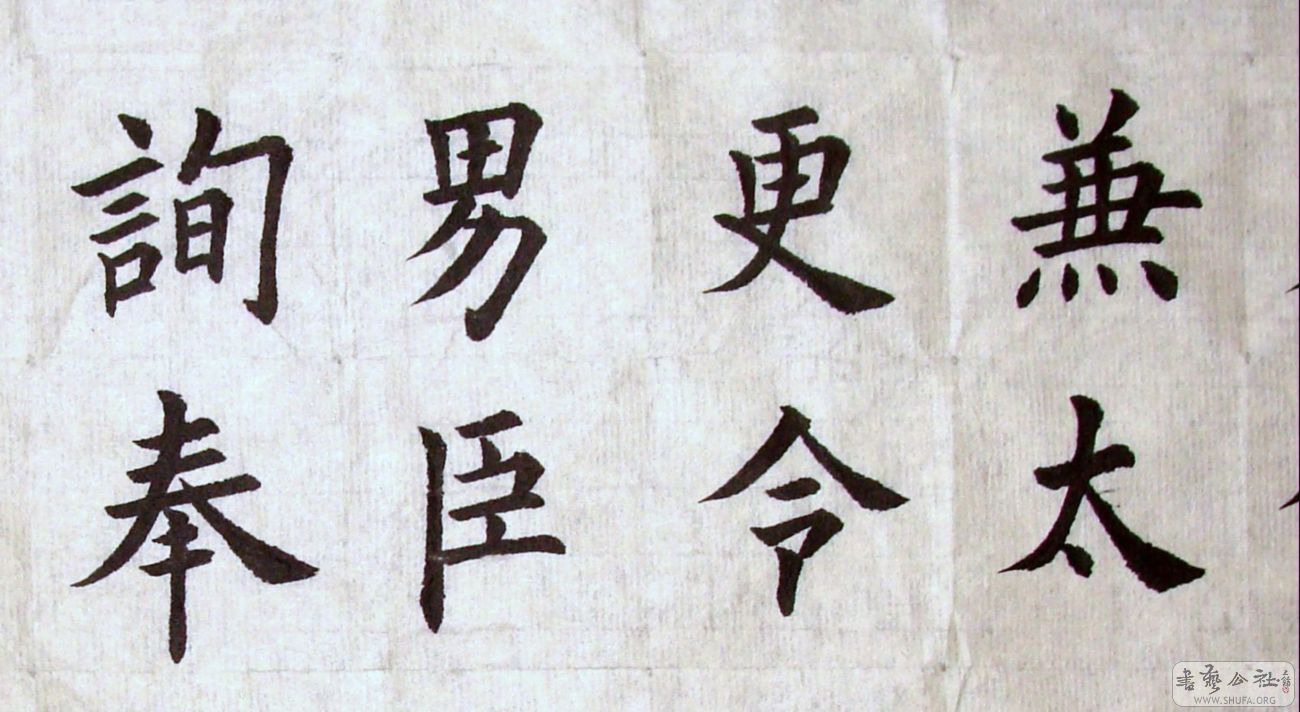 兼太
更令
男臣
詢奉
書藝公社
WWW.SHUFA.ORG